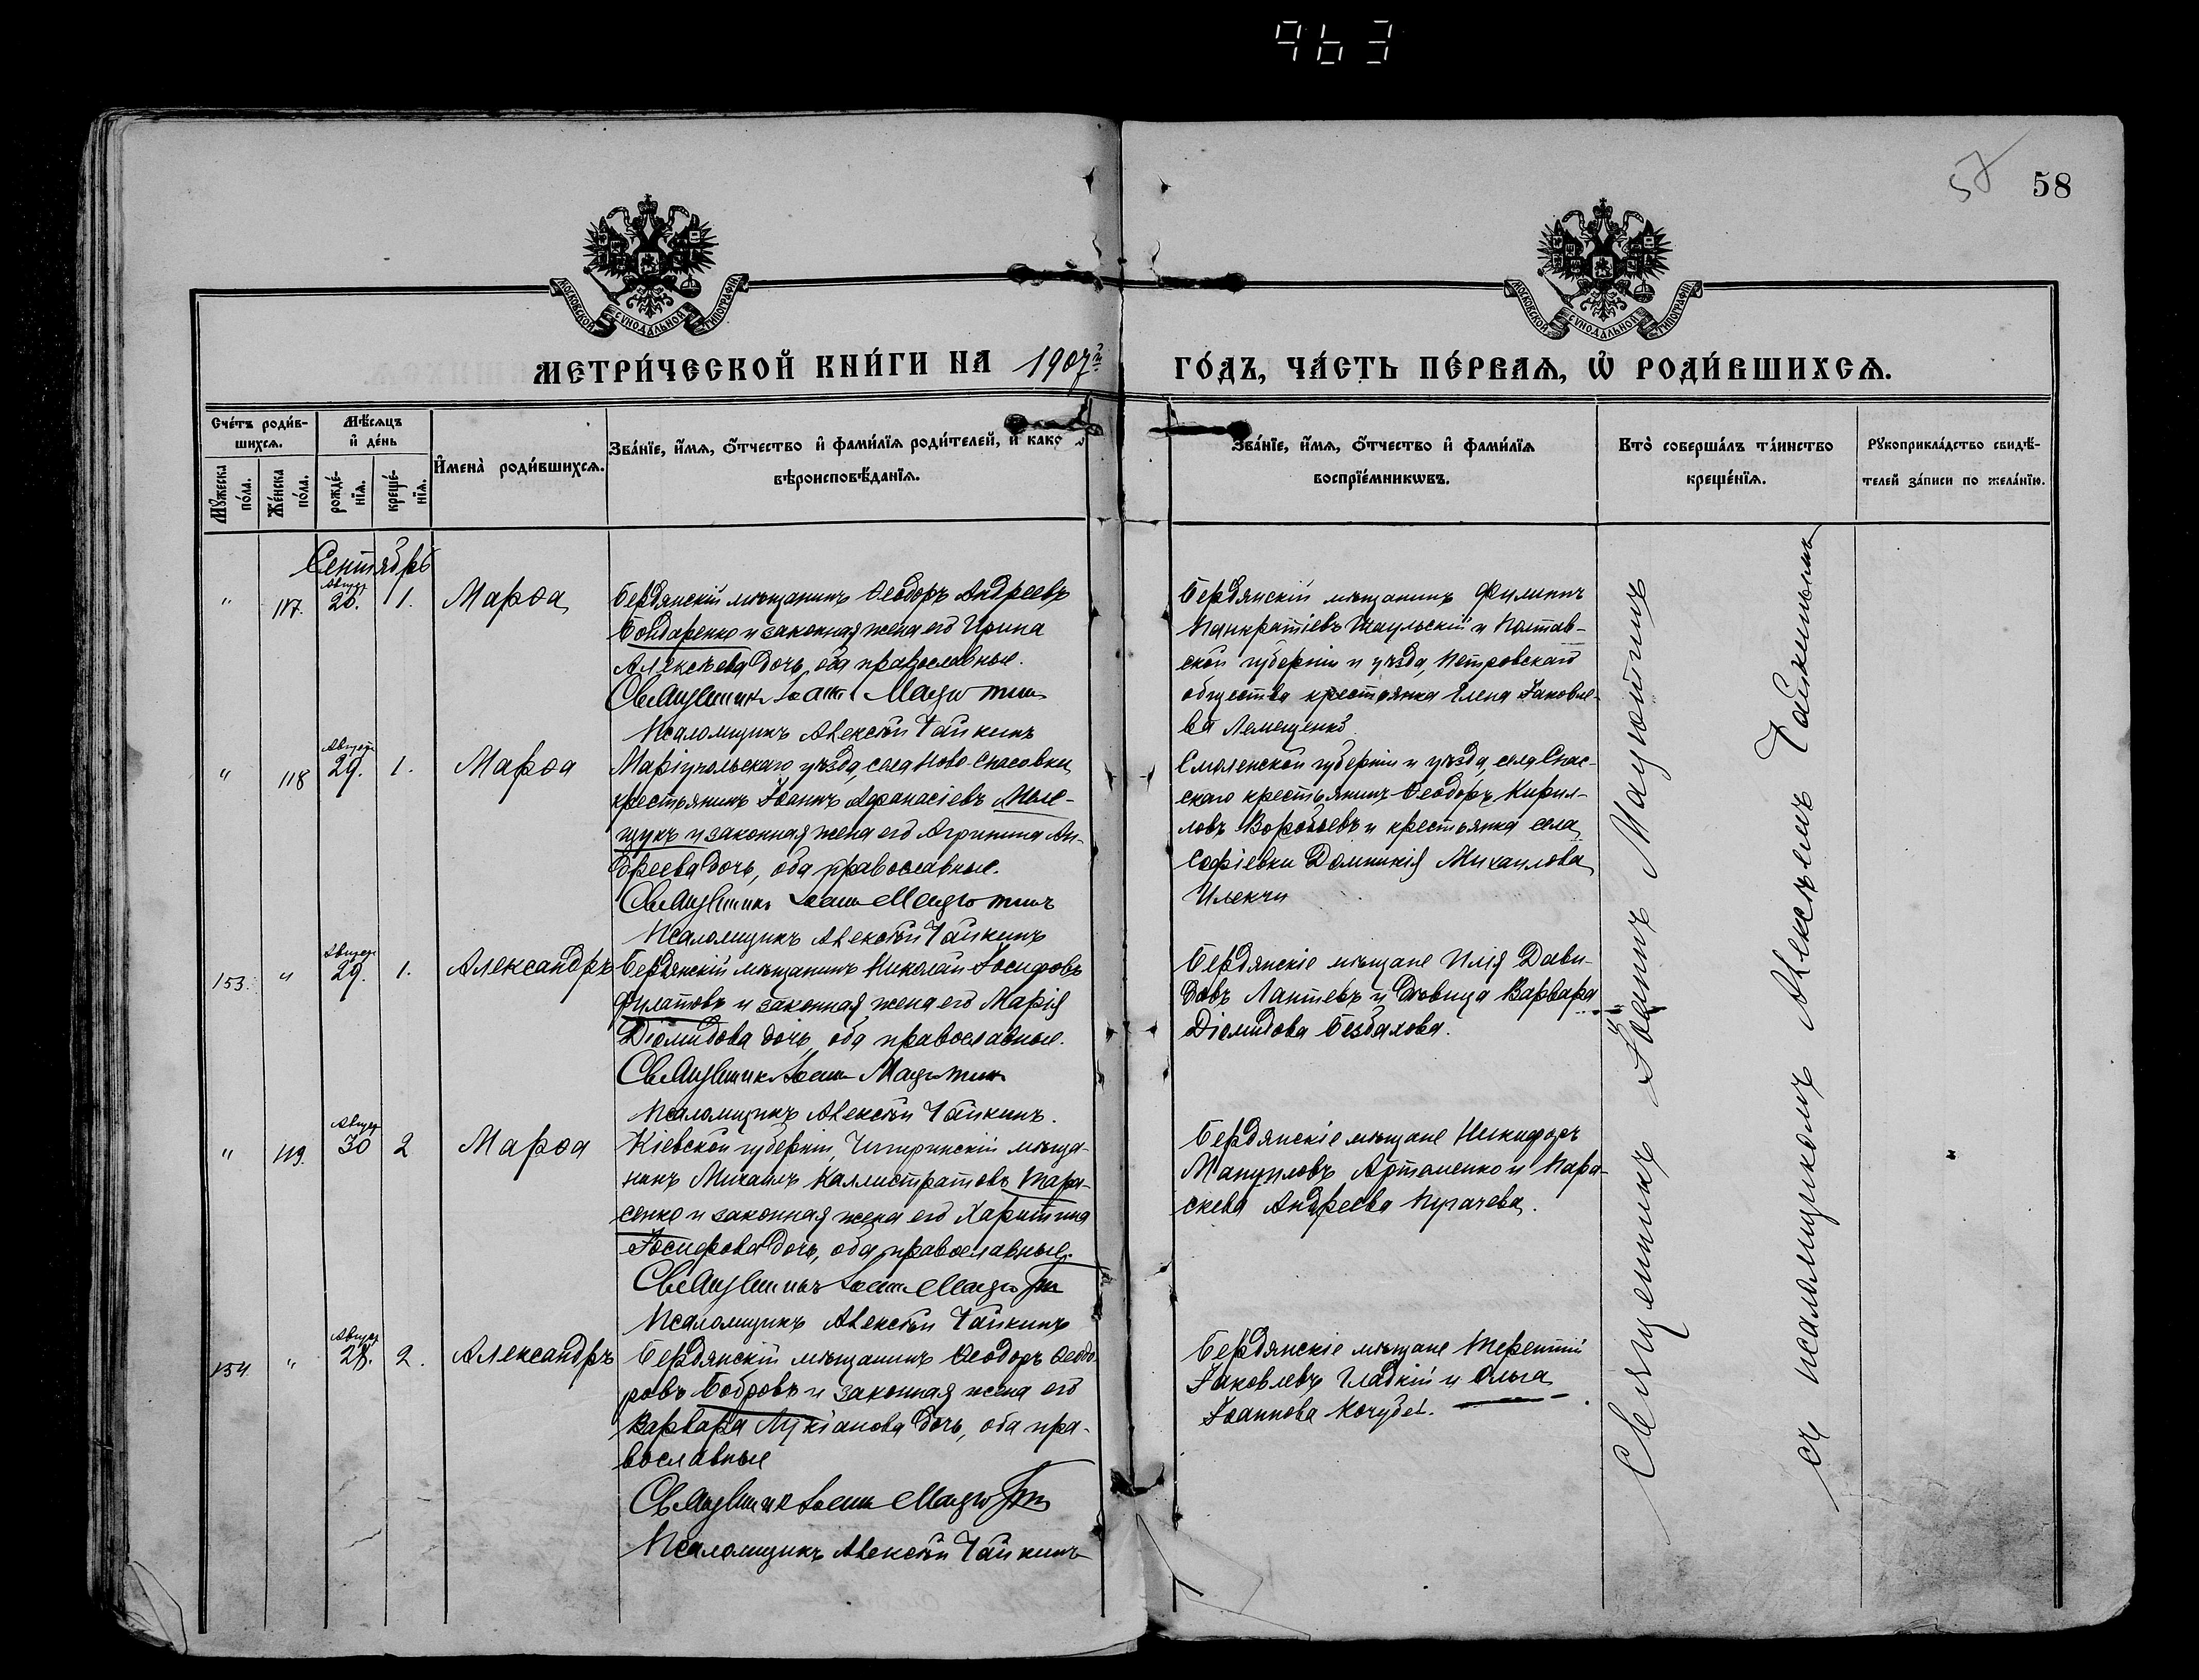 963
58
МОСКОВСКОЙ СѴНОДАЛЬНОЙ ТИПОГРАФІИ
МОСКОВСКОЙ СѴНОДАЛЬНОЙ ТИПОГРАФІИ
МЕТРИ́ЧЕСКОЙ КНИ́ГИ НА 1907й ГО́ДЪ, ЧА́СТЬ ПЕ́РВАѦ, Ѡ҆ РОДИ́ВШИХСѦ.
Сче́тъ роди́в-
шихсѧ.
Мꙋ́жеска по́ла.
Же́нска по́ла.
Мѣ́сѧцъ
и҆ де́нь
рожде́-
нїѧ.
креще́-
нїѧ.
И҆мена̀ роди́вшихсѧ.
Зва́нїе, и҆́мѧ, ѻ҆́тчество и҆ фами́лїѧ роди́телей, и҆ како
вѣроисповѣ́данїѧ.
Зва́нїе, и҆́мѧ, ѻ҆́тчество и҆ фами́лїѧ
воспрїе́мникѡвъ.
Кто̀ соверша́лъ та́инство
креще́нїѧ.
Рꙋкоприкла́дство свидѣ́-
телей за́писи по жела́нїю.
Сентябрь
Август
" 117. 26. 1. Марѳа
Бердянскій мѣщанинъ Ѳеодоръ Андреевъ
Бондаренко и законная жена его Ирина
Алексѣева дочь, оба православные.
Священникъ Іоаннъ Мацютинъ
Псаломщикъ Алексѣй Чайкинъ
Бердянскій мѣщанинъ Филиппъ
Панкратіевъ Шаульскій и Полтав-
ской губерніи и уѣзда, Петровскаго
общества крестьянка Елена Іаковле-
ва Лемещенко
Август
" 118 29. 1. Марѳа
Маріупольскаго уѣзда, села Ново-Спасовки
крестьянинъ Іоаннъ Аѳанасіевъ Моле-
щукъ и законная жена его Агрипина Ан-
дреева дочь, оба православные.
Священникъ Іоаннъ Мацютинъ
Псаломщикъ Алексѣй Чайкинъ
Смоленской губерніи и уѣзда, села Спас-
скаго крестьянинъ Ѳеодоръ Кирил-
ловъ Воробьевъ и крестьянка села
Софіевки Домникія Михаилова
Илекчи
Август
153. " 29. 1. Александръ
Бердянскій мѣщанинъ Николай Іосифовъ
Филатовъ и законная жена его Марія
Діомидова дочь, оба православные.
Священникъ Іоаннъ Мацютинъ
Псаломщикъ Алексѣй Чайкинъ.
Бердянскіе мѣщане Илія Дави-
довъ Лаптевъ и вдовица Варвара
Діомидова
Август
" 119. 30 2 Марѳа
Кіевской губерніи, Чигиринскій мѣща-
нинъ Михаилъ Каллистратовъ Тара-
сенко и законная жена его Харитина
Іосифова дочь, оба православные.
Священникъ Іоаннъ Мацютинъ
Псаломщикъ Алексѣй Чайкинъ
Бердянскіе мѣщане Никифоръ
Мануиловъ Артеменко и Пара-
скева Андреева Пугачева.
Август
154 " 28. 2. Александръ
Бердянскій мѣщанинъ Ѳеодоръ Ѳеодо-
ровъ Бобровъ и законная жена его
Варвара Лукіанова дочь, оба пра-
вославные
Священникъ Іоаннъ Мацютинъ
Псаломщикъ Алексѣй Чайкинъ
Бердянскіе мѣщане Терентій
Іаковлевъ Гладкій и Ольга
Іоаннова Кочубей.
Священникъ Іоаннъ Мацютинъ
съ псаломщикомъ Алексѣемъ Чайкинымъ